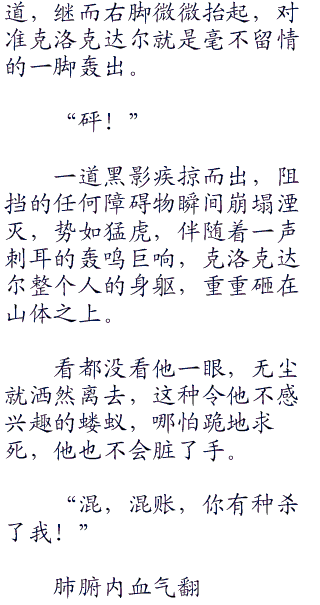 道，继而右脚微微抬起，对
准克洛克达尔就是毫不留情
的一脚轰出。
“砰！”
一道黑影疾掠而出，阻
挡的任何障碍物瞬间崩塌湮
灭，势如猛虎，伴随着一声
刺耳的轰鸣巨响，克洛克达
尔整个人的身躯，重重砸在
山体之上。
看都没看他一眼，无尘
就洒然离去，这种令他不感
兴趣的蝼蚁，哪怕跪地求
死，他也不会脏了手。
“混，混账，你有种杀
了我！”
肺腑内血气翻